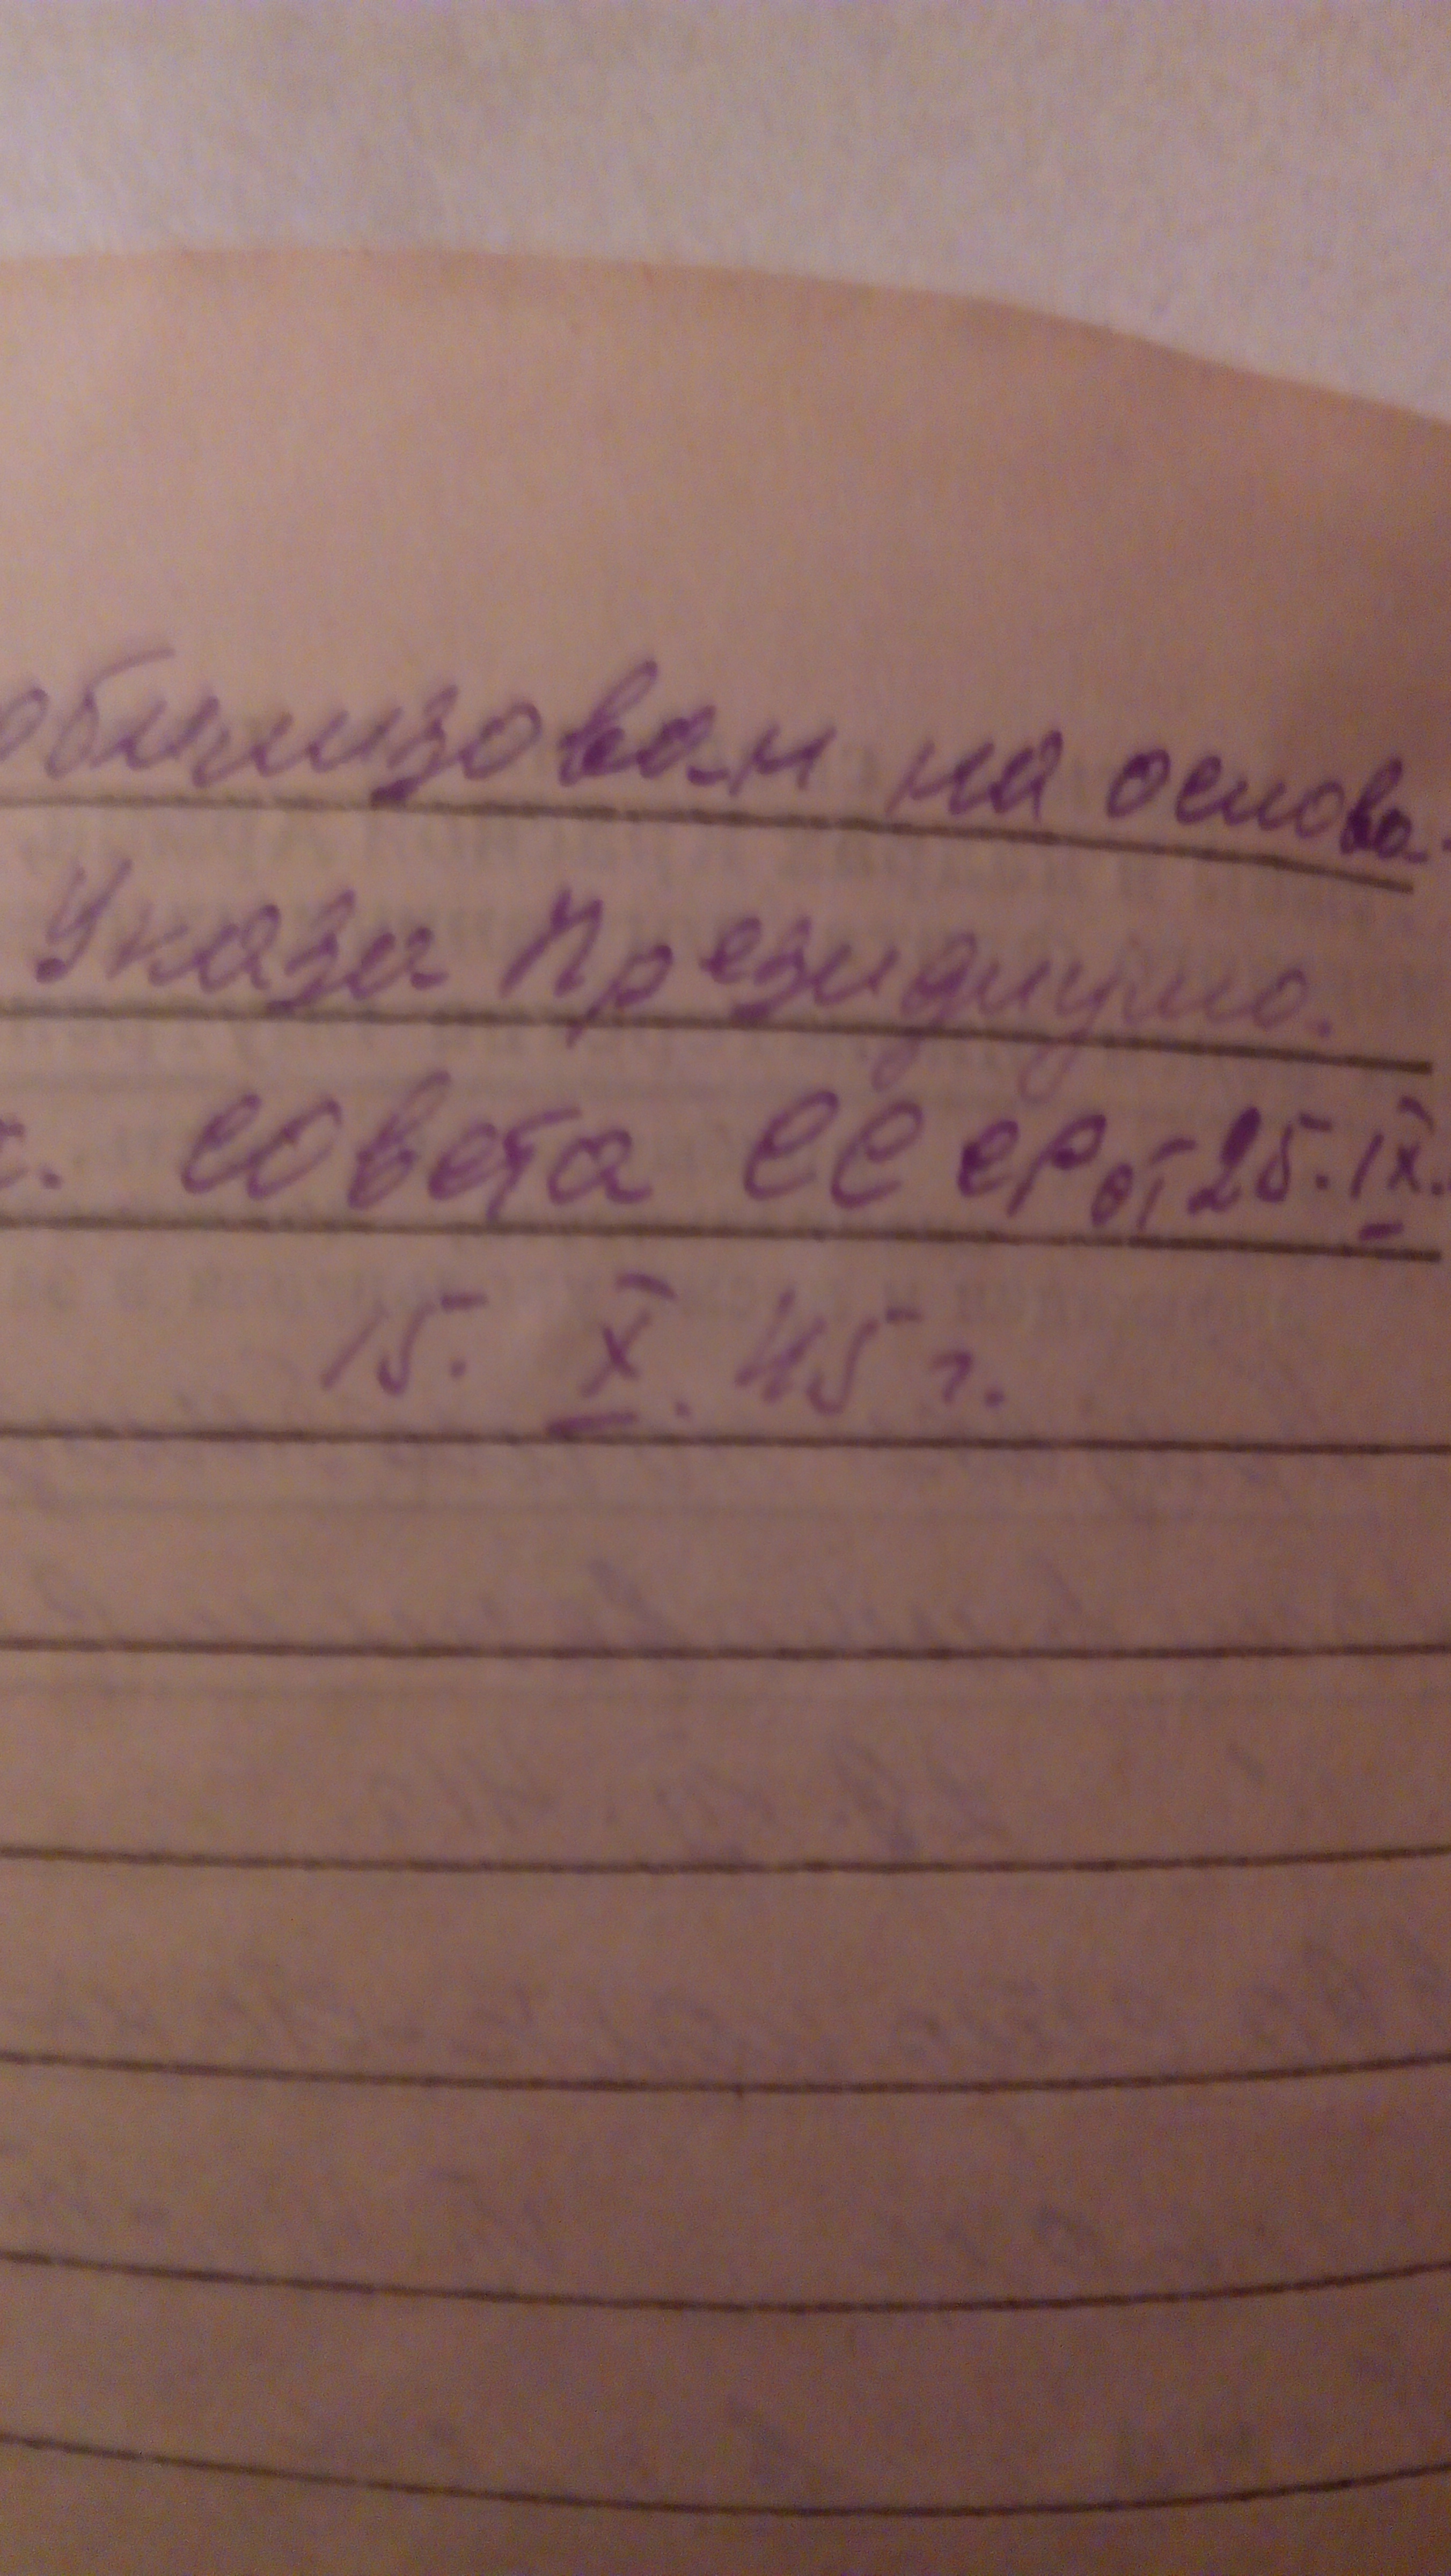 обилизован на основа-
Указа Президиума.
х. Совета СССР от 25.IX.
15. X. 45 г.